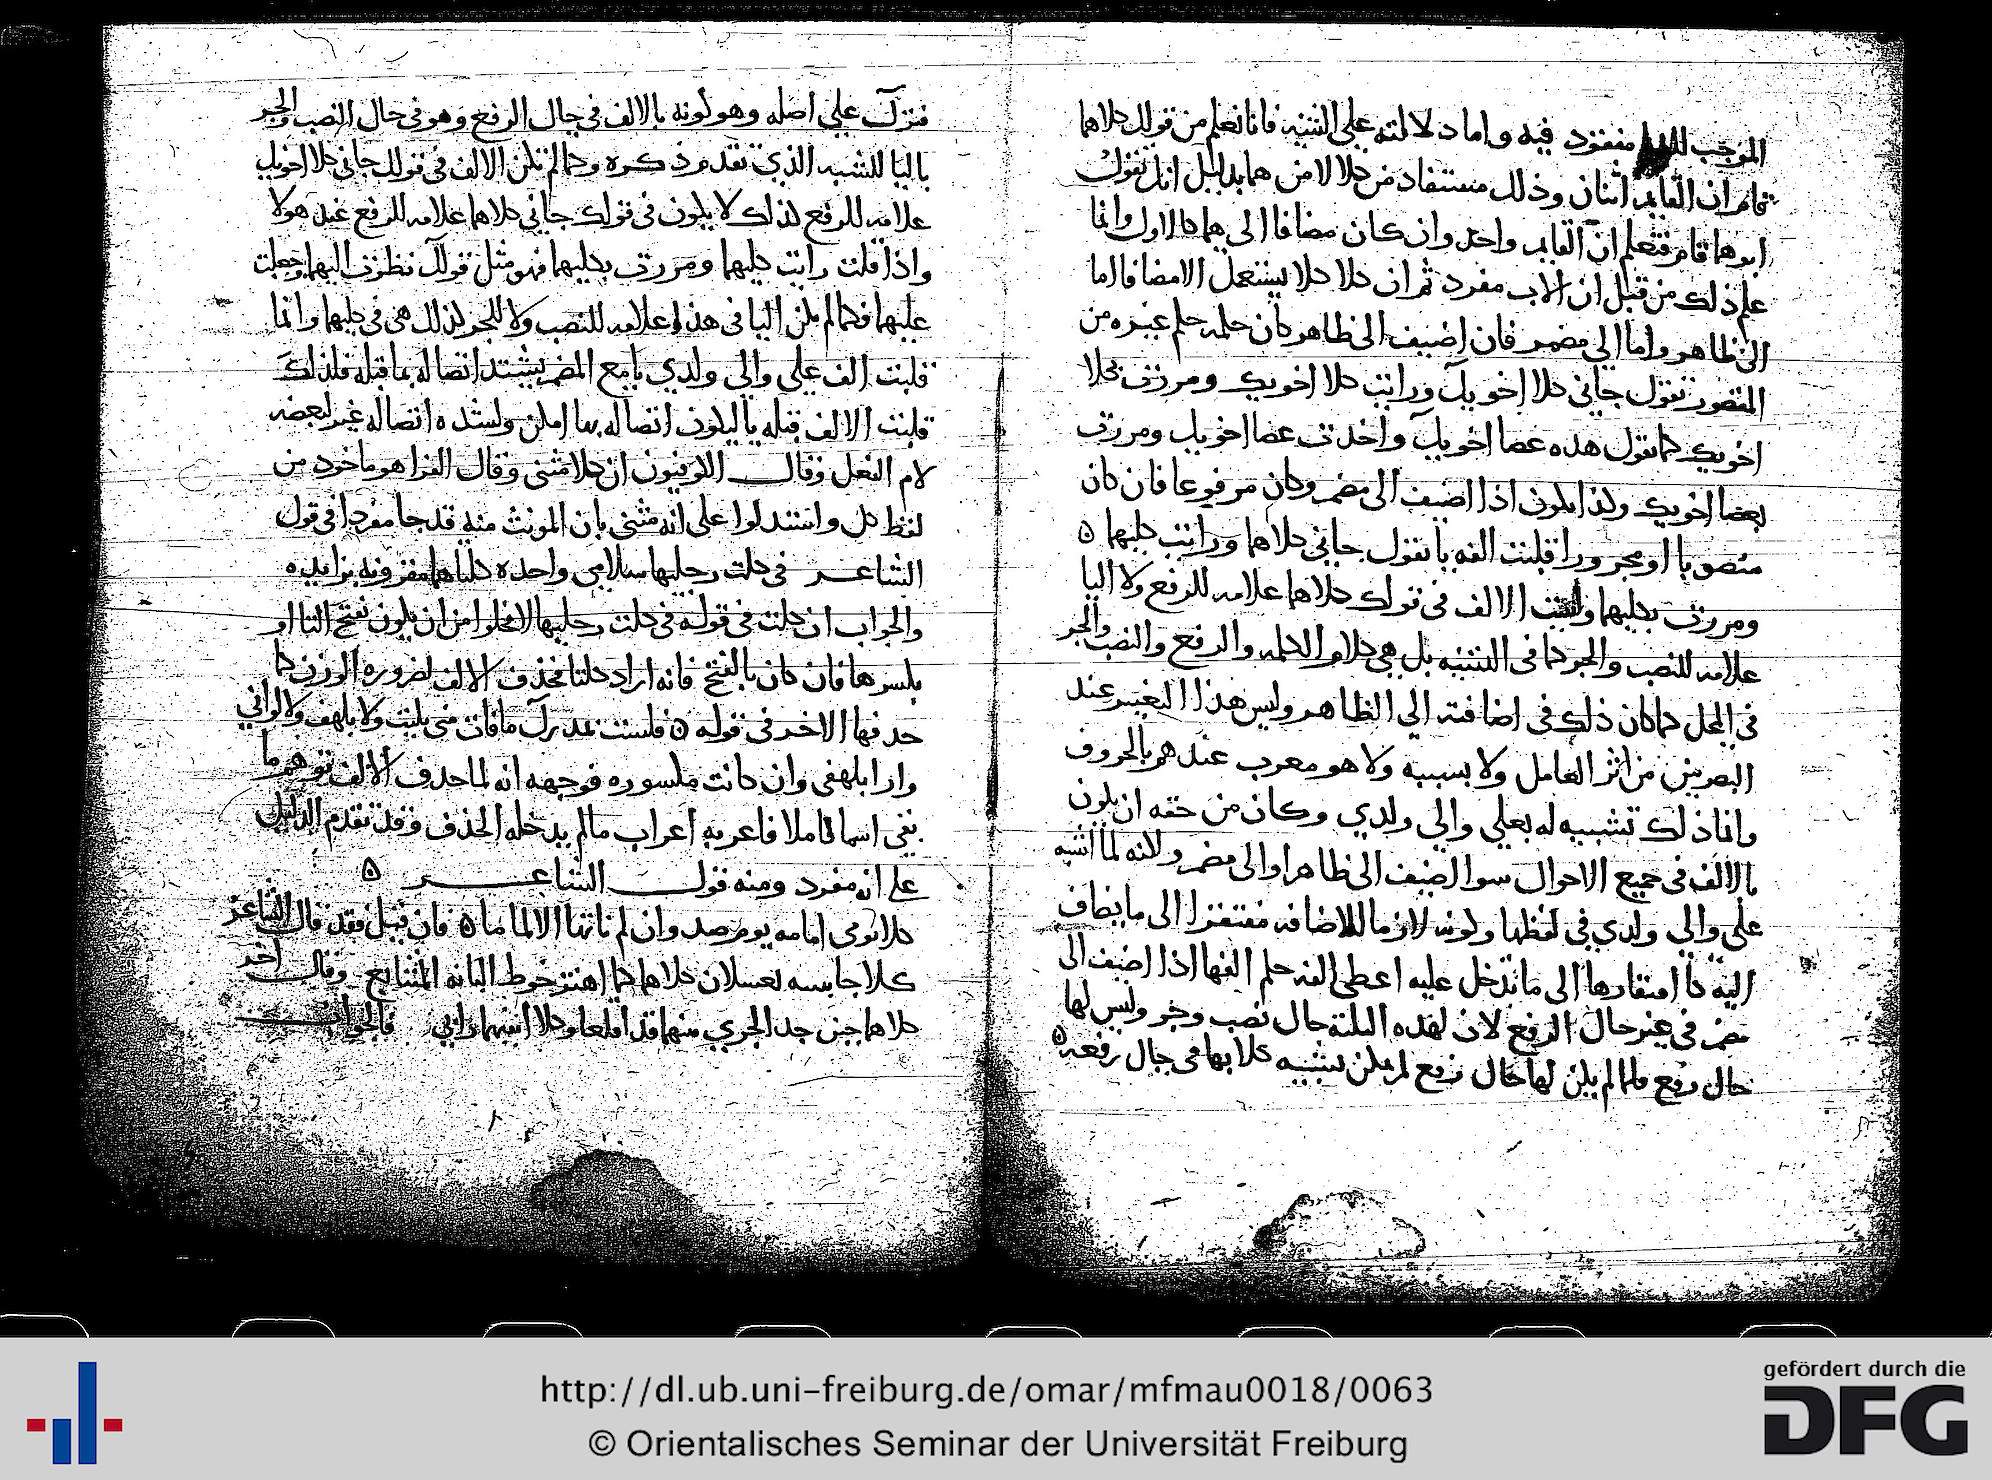 الموجب للبنا منفقود فيه واما دلالته علي التثنيه فانا نعلم من قولك كلاهما
قام ان القايم اثنان وذلك مستفاد من كلا لا من هما بدليل انك تقول
ابوهما قام فتعلم ان القايم واحد وان كان مضافا الى هما كالاول وانما
علم ذلك من قبل ان الاب مفرد ثم ان كلا كلا يستعمل الا مضافا اما
الى ظاهر واما الي مضمر فان اضيف الى ظاهر كان حكمه حكم غيره من
المقصور تقول جاني كلا اخويك ورايت كلا اخويك ومررت بكلا
اخويك كما تقول هذه عصا اخويك واخذت عصا اخويك ومررت
بعصا اخويك وكذا يكون اذا اضيف الى مضمر وكان مرفوعا فان كان
منصوبا او مجرورا قلبت الفه يا تقول جاني كلاهما ورايت كليهما ه
ومررت بكليهما وليست الالف في قولك كلاهما علامه للرفع ولا اليا
علامه للنصب والجر كما في التثنيه بل هي كلام الكلمه والرفع والنصب والجر
في المحل كما كان ذلك في اضافته الي الظاهر وليس هذا التغيير عند
البصريين من اثر العامل ولا بسببه ولا هو معرب عندهم بالحروف
وانما ذلك تشبيه له بعلي والي ولدي وكان من حقه ان يكون
بالالف في جميع الاحوال سوا اضيف الى ظاهر او الى مضمر ولانه لما اشبه
على والي ولدي في لفظها وكونه لازما للاضافه مفتقرا الى ما يضاف
اليه كافتقارها الى ما تدخل عليه اعطى الفه حكم الفها اذا اضيف الى
مضمر في غير حال الرفع لان لهذه الثلثة حال نصب وجر وليس لها
حال رفع فلما لم يكن لها حال رفع لم يمكن تشبيه كلا بها في حال رفعه ه
فترك علي اصله وهو كونه بالالف في حال الرفع وهو في حال النصب والجر
باليا للشبه الذي تقدم ذكره وكما لم تكن الالف في قولك جاني كلا اخويك
علامه للرفع كذلك لا يكون في قولك جاني كلاهما علامه للرفع عند هولا
واذا قلت رايت كليهما ومررت بكليهما فهو مثل قولك نظرت اليهما وجعلت
عليهما فكما لم يكن اليا في هذا علامه للنصب ولا للجر كذلك هي في كليهما وانما
قلبت الف علي والي ولدي يا مع المضمر يشتد اتصاله بما قبله فلذلك
قلبت الالف قبله يا ليكون اتصاله بها امكن ولشده اتصاله غير لبعضه
لام الفعل وقال الكوفيون ان كلا مثنى وقال الفرا هو ماخوذ من
لفظ كل واستدلوا على انه مثنى بان المونث منه قد جا مفردا في قول
الشاعر في كلت رجليها سلامى واحده كلتاهما مقرونه بزايده
والجواب ان كلت في قوله في كلت رجليها لا يخلوا من ان يكون بفتح التا او
بكسرها فان كان بالفتح فانه اراد كلتا فحذف الالف لضروره الوزن كما
حذفها الاخر في قوله ه فلست بمدرك ما فات مني بليت ولا بلهف ولا لواني
واراد بلهفى وان كانت مكسوره فوجهه انه لما حذف الالف توهم ما
بقي اسما كاملا فاعربه اعراب ما لم يدخله الحذف وقد تقدم الدليل
على انه مفرد ومنه قول الشاعر ه
كلا يومى امامه يوم صد وان لم ناتها الا لماما ه فان قيل فقد قال الشاعر
كلا جانبيه يعسلان كلاهما كما اهتز خوط البانه المتتابع وقال اخر
كلاهما حين جد الجري منهما قد اقلعا وكلا انفيهما رابي فالجواب
http://dl.ub.uni-freiburg.de/omar/mfmau0018/0063
© Orientalisches Seminar der Universität Freiburg
gefördert durch die
DFG